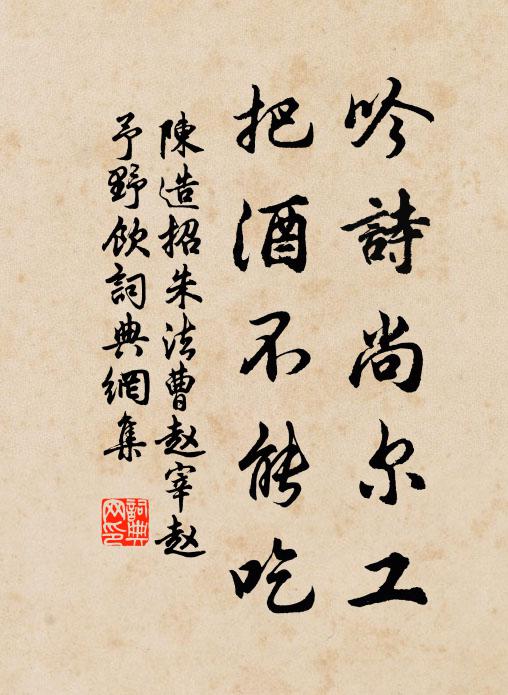 吟詩尚尔工
把酒不能吃
陳造招朱法曹赵宰赵
予野飲詞典網集
詞典
网印